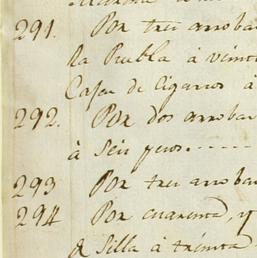 291. Por tres arroba
la Puebla à veint
Cajon de Cigarros à
292. Por dos arroba
à seis pesos.-----
293 Por tres arroba
294 Por cuarenta, y
de silla à treinta